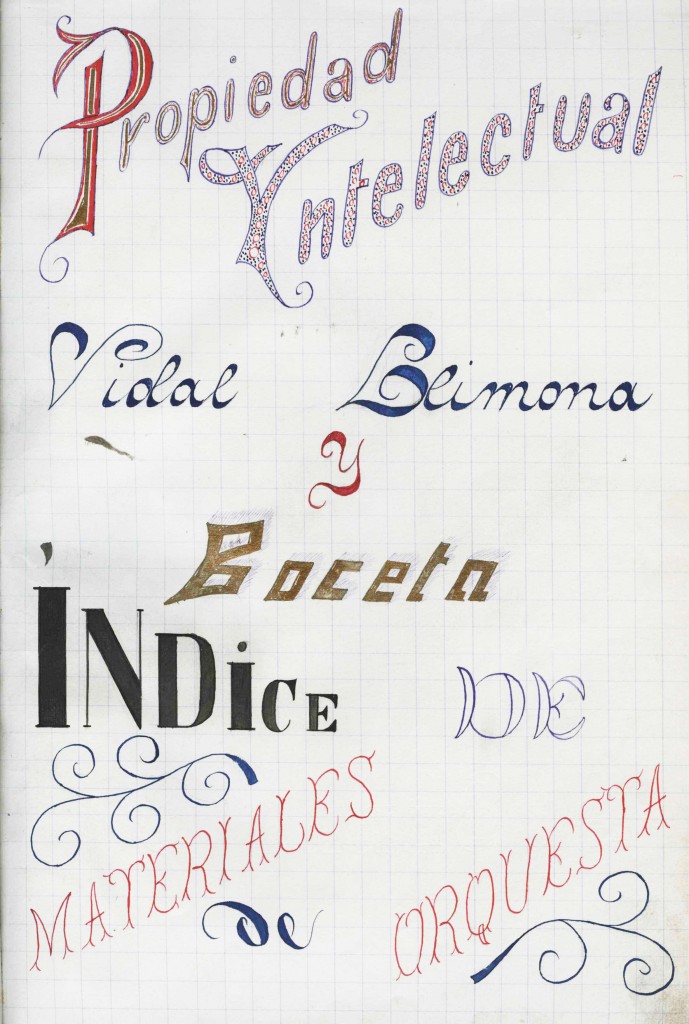 Propiedad
Yntelectual
Vidal Llimona
y
Boceta
ÍNDiCE DE
MATERIALES
de ORQUESTA